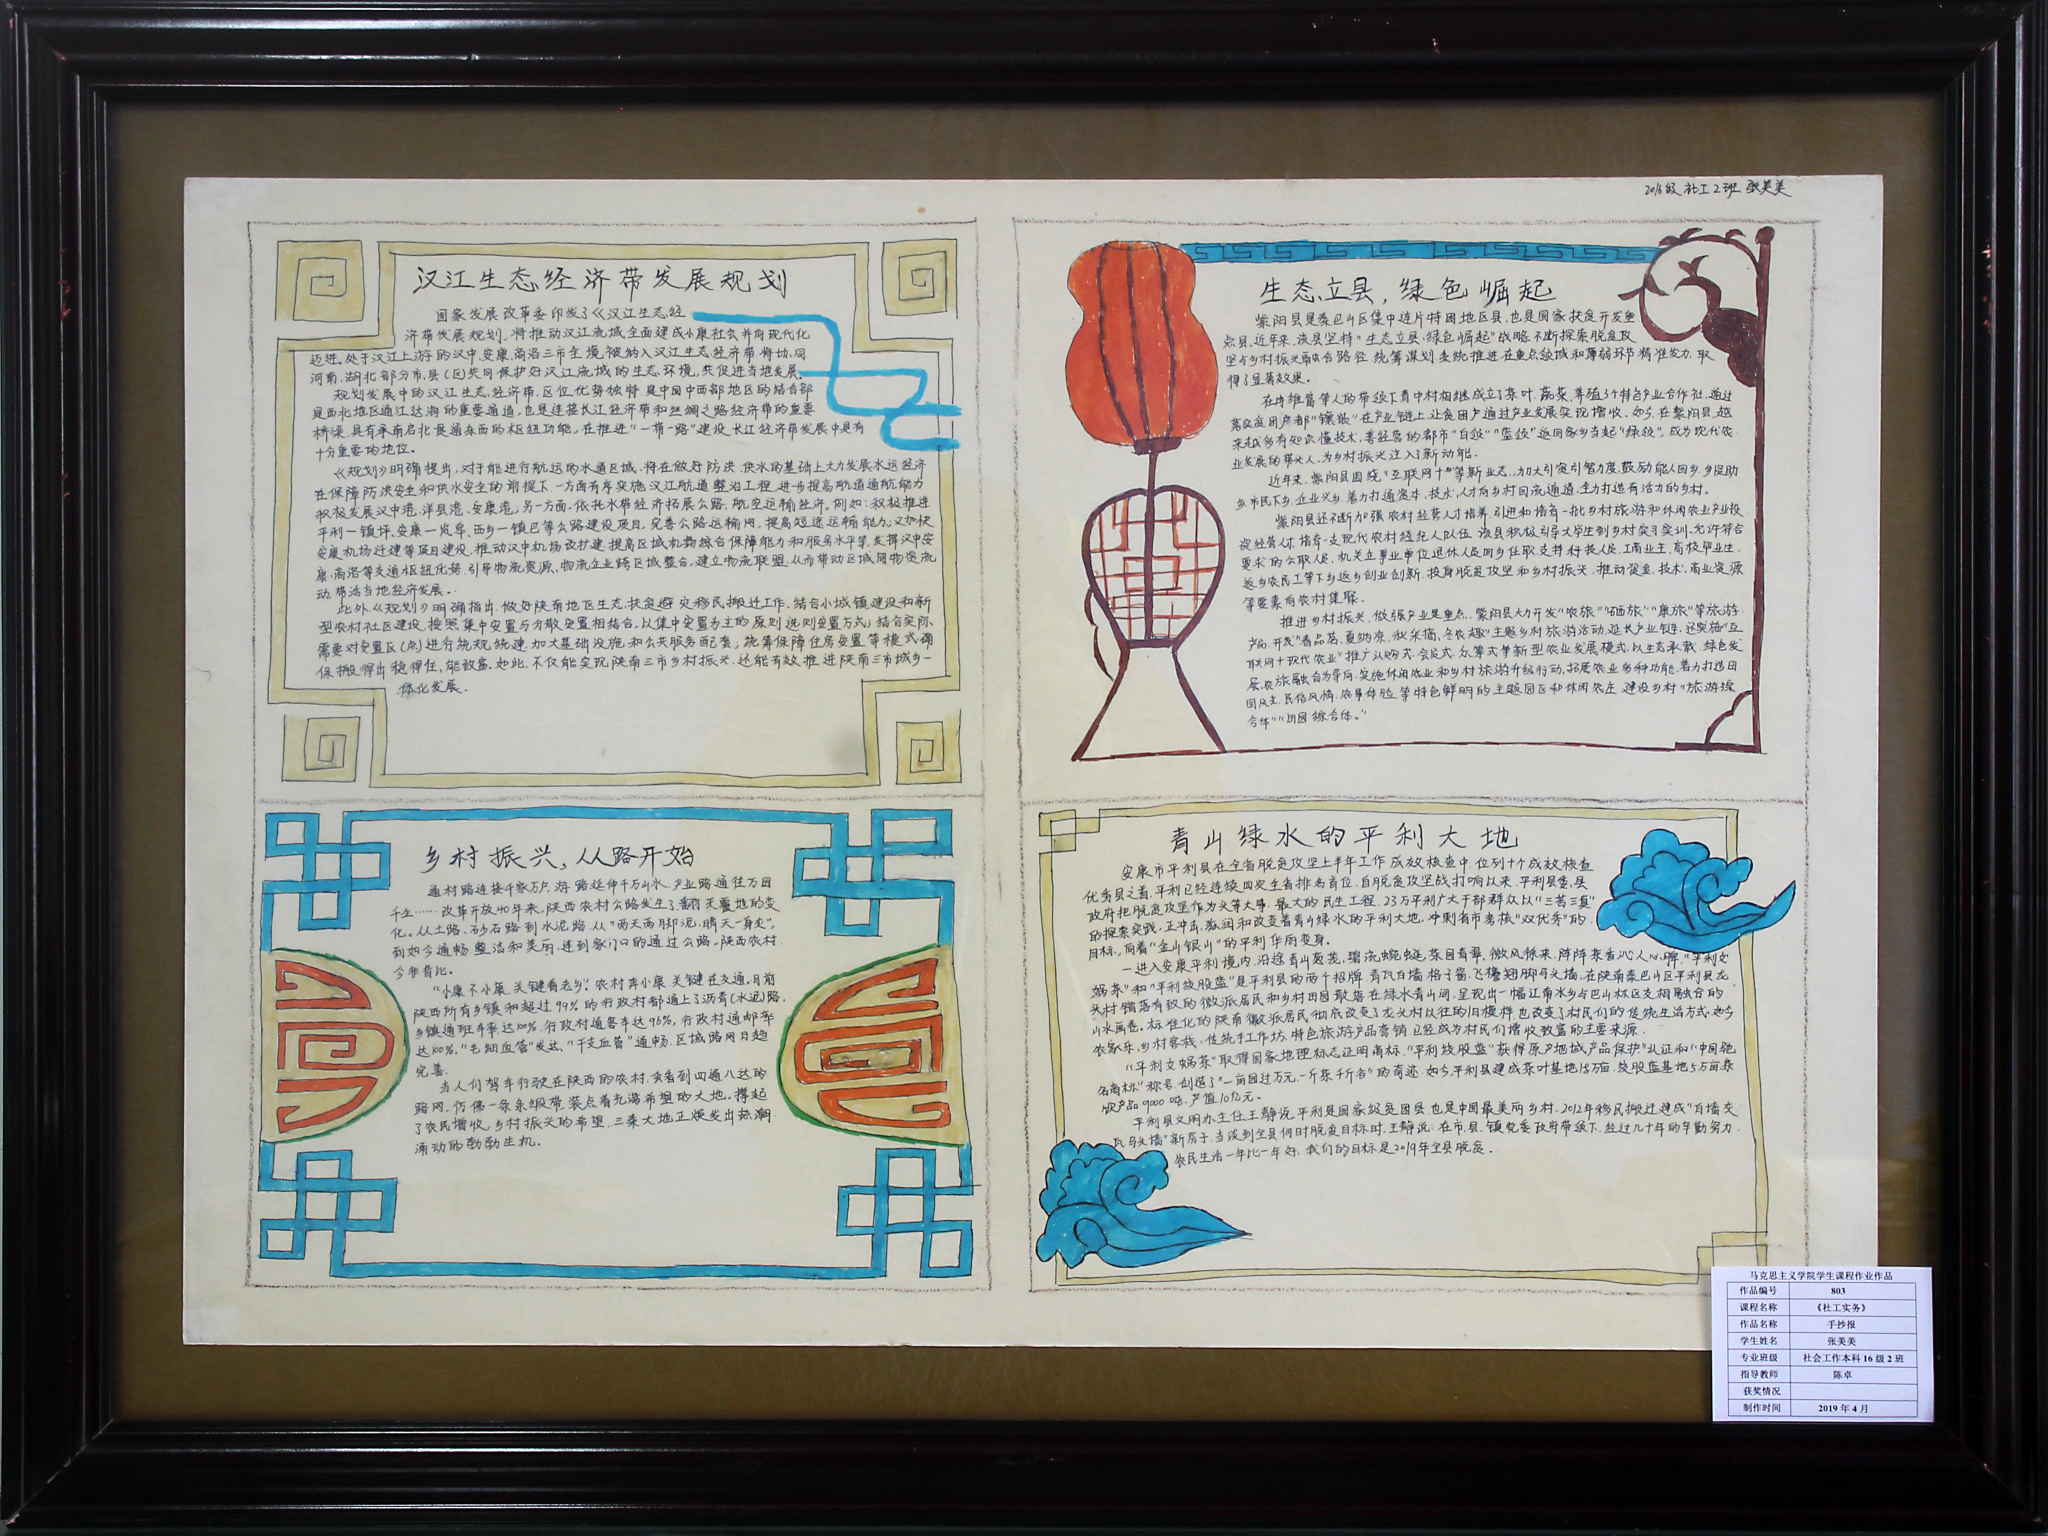 2016级 社工2班 张美美
汉江生态经济带发展规划
国家发展改革委印发了《汉江生态经
济带发展规划》,将推动汉江流域全面建成小康社会并向现代化
迈进。处于汉江上游的汉中、安康、商洛三市全境被纳入汉江生态经济带,将协同
河南、湖北部分市、县(区)共同保护好汉江流域的生态环境,共促进当地发展。
规划发展中的汉江生态经济带,区位优势独特,是中国中西部地区的结合部
是西北地区通江达海的重要通道,也是连接长江经济带和丝绸之路经济带的重要
桥梁,具有承南启北贯通东西的枢纽功能,在推进“一带一路”建设、长江经济带发展中具有
十分重要的地位。
《规划》明确提出,对于能进行航运的水道区域,将在做好防洪、供水的基础上大力发展水运经济
在保障防洪安全和供水安全的前提下,一方面有序实施汉江航道整治工程,进步提高航道通航能力
积极发展汉中港、洋县港、安康港;另一方面,依托水带经济拓展公路、航空运输经济。例如:积极推进
平利一镇坪、安康一岚皋、西乡一镇巴等公路建设项目,完善公路运输网,提高短途运输能力;又加快
安康机场迁建等项目建设,推动汉中机场改扩建,提高区域机场综合保障能力和服务水平等,发挥汉中安
康、商洛等交通枢纽优势,引导物流资源、物流企业跨区域整合,建立物流联盟,从而带动区域周物资流
动,带活当地经济发展。
此外,《规划》明确指出,做好陕南地区生态扶贫避灾移民搬迁工作,结合小城镇建设和新
型农村社区建设,按照集中安置与分散安置相结合,以集中安置为主的原则选则安置方式;结合实际、
需要对安置区(点)进行统规统建,加大基础设施和公共服务配套;统筹保障住房安置等模式确
保搬得出、稳得住、能致富。如此,不仅能实现陕南三市乡村振兴,还能有效推进陕南三市城乡一
体化发展。
生态立县,绿色崛起
紫阳县是秦巴山区集中连片特困地区县,也是国家扶贫开发重
点县,近年来,该县坚持“生态立县,绿色崛起”战略,不断探索脱贫攻
坚与乡村振兴融合路径,统筹谋划系统推进,在重点领域和薄弱环节精准发力,取
得了显著效果。
在冉维富等人的带领下青中村相继成立了茶叶、蔬菜、养殖3个特色产业合作社,通过
落实贫困户都“镶嵌”在产业链上,让贫困户通过产业发展实现增收。如今,在紫阳县,越
来越多有知识、懂技术、善经营的都市“白领”“蓝领”返回家乡当起“绿领”,成为现代农
业发展的带头人,为乡村振兴注入了新动能。
近年来,紫阳县围绕“互联网+”等新业态,加大引资引智力度,鼓励能人回乡,乡贤助
乡、市民下乡、企业兴乡,着力打通资本、技术、人才向乡村回流通道,全力打造有活力的乡村。
紫阳县还不断加强农村经营人才培养,引进和培育一批乡村旅游和休闲农业产业投
资经营人才,培育一支现代农村经纪人队伍,该县积极引导大学生到乡村实习实训,允许符合
要求的公职人员,机关企事业单位退休人员回乡任职,支持科技人员、工商业主、高校毕业生、
返乡农民工等下乡返乡创业创新,投身脱贫攻坚和乡村振兴,推动资金、技术、商业资源
等要素向农村集聚。
推进乡村振兴,做强产业是重点。紫阳县大力开发“农旅”“硒旅”“康旅”等旅游
产品,开发“春品茗、夏纳凉、秋采摘、冬农趣”主题乡村旅游活动,延长产业链,还实施“互
联网+现代农业”推广认购式、会定式、众筹式等新型农业发展模式,以生态承载、绿色发
展、农旅融合为导向,实施休闲农业和乡村旅游升级行动,拓展农业多种功能,着力打造田
园风光、民俗风情、农事体验等特色鲜明的主题园区和休闲农庄,建设乡村“旅游综
合体”“田园综合体。”
乡村振兴,从路开始
通村路连接千家万户,旅游路延伸千万山水,产业路通往万园
千企……改革开放40年来,陕西农村公路发生了翻天覆地的变
化。从土路、砂石路到水泥路,从“雨天两脚泥,晴天一身灰”,
到如今通畅、整洁和美丽,连到家门口的通过公路,陕西农村
今非昔比。
“小康不小康,关键看老乡”。农村奔小康,关键在交通。目前
陕西所有乡镇和超过99%的行政村都通上了沥青(水泥)路,
乡镇通班车率达100%,行政村通客车达96%,行政村通邮率
达100%,“毛细血管”发达,“干支血管”通畅,区域路网日趋
完善。
当人们驾车行驶在陕西的农村,会看到四通八达的
路网,仿佛一条条缎带,装点着充满希望的大地。撑起
了农民增收、乡村振兴的希望,三秦大地正焕发出热潮
涌动的勃勃生机。
青山绿水的平利大地
安康市平利县在全省脱贫攻坚上半年工作成效核查中,位列十个成效核查
优秀县之首,平利已经连续四次全省排名首位,自脱贫攻坚战打响以来,平利县委、县
政府把脱贫攻坚作为头等大事、最大的民生工程,23万平利广大干部群众以“三苦三真”
的探索实践,正冲击、滋润和改变着青山绿水的平利大地,冲刺省市考核“双优秀”的
目标,向着“金山银山”的平利华丽变身。
一进入安康平利境内,沿途青山葱茏,碧流蜿蜒,茶园青翠,微风徐来,阵阵茶香沁人心脾,“平利女
娲茶”和“平利绞股蓝”是平利县的两个招牌,青瓦白墙格子窗,飞檐翘脚马头墙,在陕南秦巴山区平利县龙
头村,错落有致的徽派居民和乡村田园散落在绿水青山间,呈现出一幅江南水乡与巴山林区交相融合的
山水画卷。标准化的陕南徽派居民彻底改变了龙头村以往的旧模样,也改变了村民们的传统生活方式,如今
农家乐、乡村客栈、传统手工作坊、特色旅游产品营销,已经成为村民们增收致富的主要来源。
“平利女娲茶”取得国家地理标志证明商标,“平利绞股蓝”获得原产地域产品保护”认证和“中国驰
名商标”称号,创造了“一亩园过万元,一斤茶千斤谷”的奇迹,如今平利县建成茶叶基地15万亩,绞股蓝基地5万亩,茶
饮产品9000吨,产值10亿元。
平利县文明办主任王静说,平利是国家级贫困县,也是中国最美丽乡村,2012年移民搬迁建成“白墙灰
瓦马头墙”新房子,当谈到全县何时脱贫目标时,王静说:在市、县、镇党委政府带领下,经过几十年的辛勤努力,
农民生活一年比一年好,我们的目标是2019年全县脱贫。
马克思主义学院学生课程作业作品
作品编号 803
课程名称 《社工实务》
作品名称 手抄报
学生姓名 张美美
专业班级 社会工作本科16级2班
指导教师 陈卓
获奖情况
制作时间 2019年4月